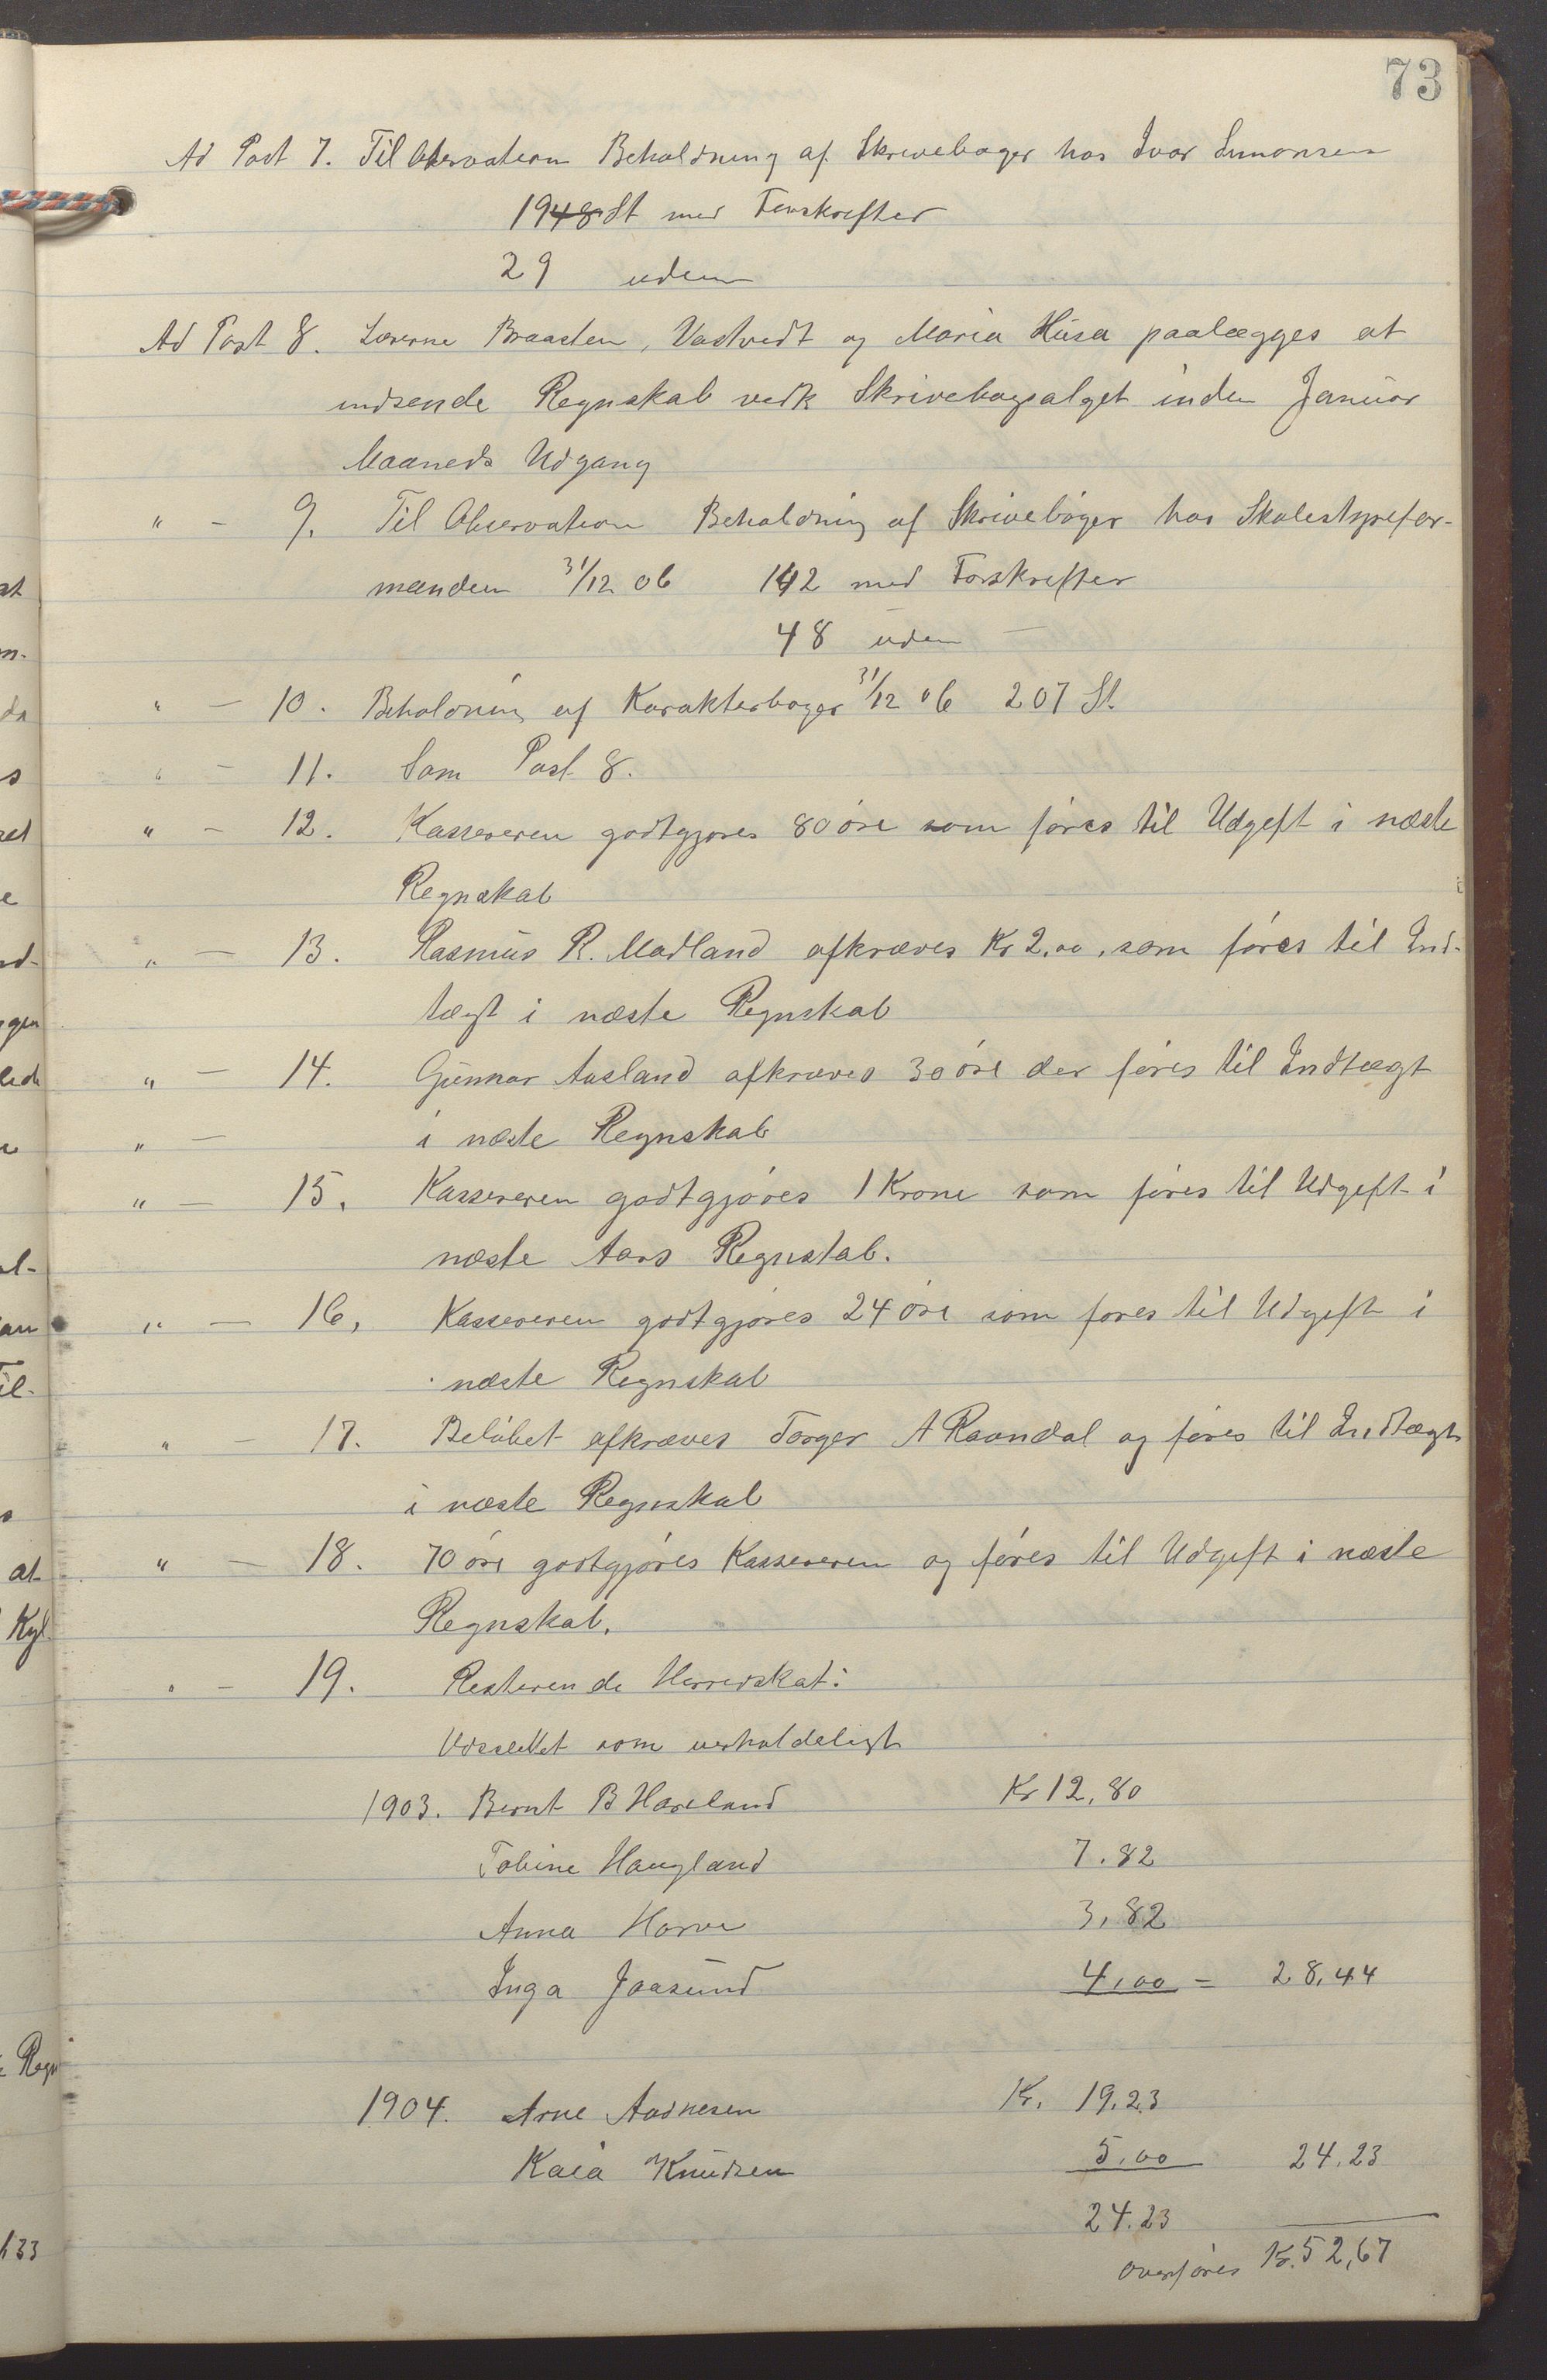 73
Ad Post 7. Til Observation Beholdning af Skrivebøger hos Ivar Simonsen
1948 St med Forskrifter
29 uden
Ad Post 8. Lærerne Braasten, Vastvedt og Maria Husa paalægges at
indsende Regnskab vedk Skrivebogsalget inden Januar
Maaneds Udgang
" - 9. Til Observation Beholdning af Skrivebøger hos Skolestyrefor-
manden 31/12 06 142 med Forskrifter
48 uden —
" - 10. Beholdning af Karakterbøger 31/12 06 207 St.
" - 11. Som Post 8.
" - 12. Kassereren godtgjøres 80 øre som føres til Udgift i næste
Regnskab
" - 13. Rasmus R. Madland afkræves Kr 2,00, som føres til Ind-
tægt i næste Regnskab
" - 14. Gunnar Aasland afkræves 30 øre der føres til Indtægt
" - i næste Regnskab
" - 15. Kassereren godtgjøres 1 Krone som føres til Udgift i
næste Aars Regnskab.
" - 16, Kassereren godtgjøres 24 øre som føres til Udgift i
næste Regnskab
" 17. Beløbet afkræves Torger A Ravndal og føres til Indtægt
i næste Regnskab
" - 18. 70 øre godtgjøres Kassereren og føres til Udgift i næste
Regnskab.
" - 19. Resterende Herredskat:
Udsættet som uerholdeligt
1903. Bernt B Hareland Kr 12,80
Tobine Haugland 7.82
Anna Horve 3,82
Inga Jaasund 4,00 = 28,44
1904. Arne Aadnesen Kr. 19,23
Kaia Knudsen 5,00 24,23
24.23
overføres Kr. 52,67